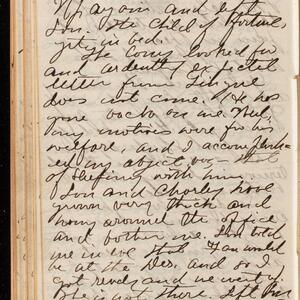 again and left
Lon. The child of fortune,
in bed.
The long looked for
and ardently expected
letter from
does not come. He has
gone back on me. Well,
my motives were for his
welfare, and I accomplish-
ed my object
of with him.
Lon and Charley have
grown very thick and
hang around the office
and bother me. Lon told
me in eve that Fan would
be at the and so I
got ready and we went
She is not there. Left